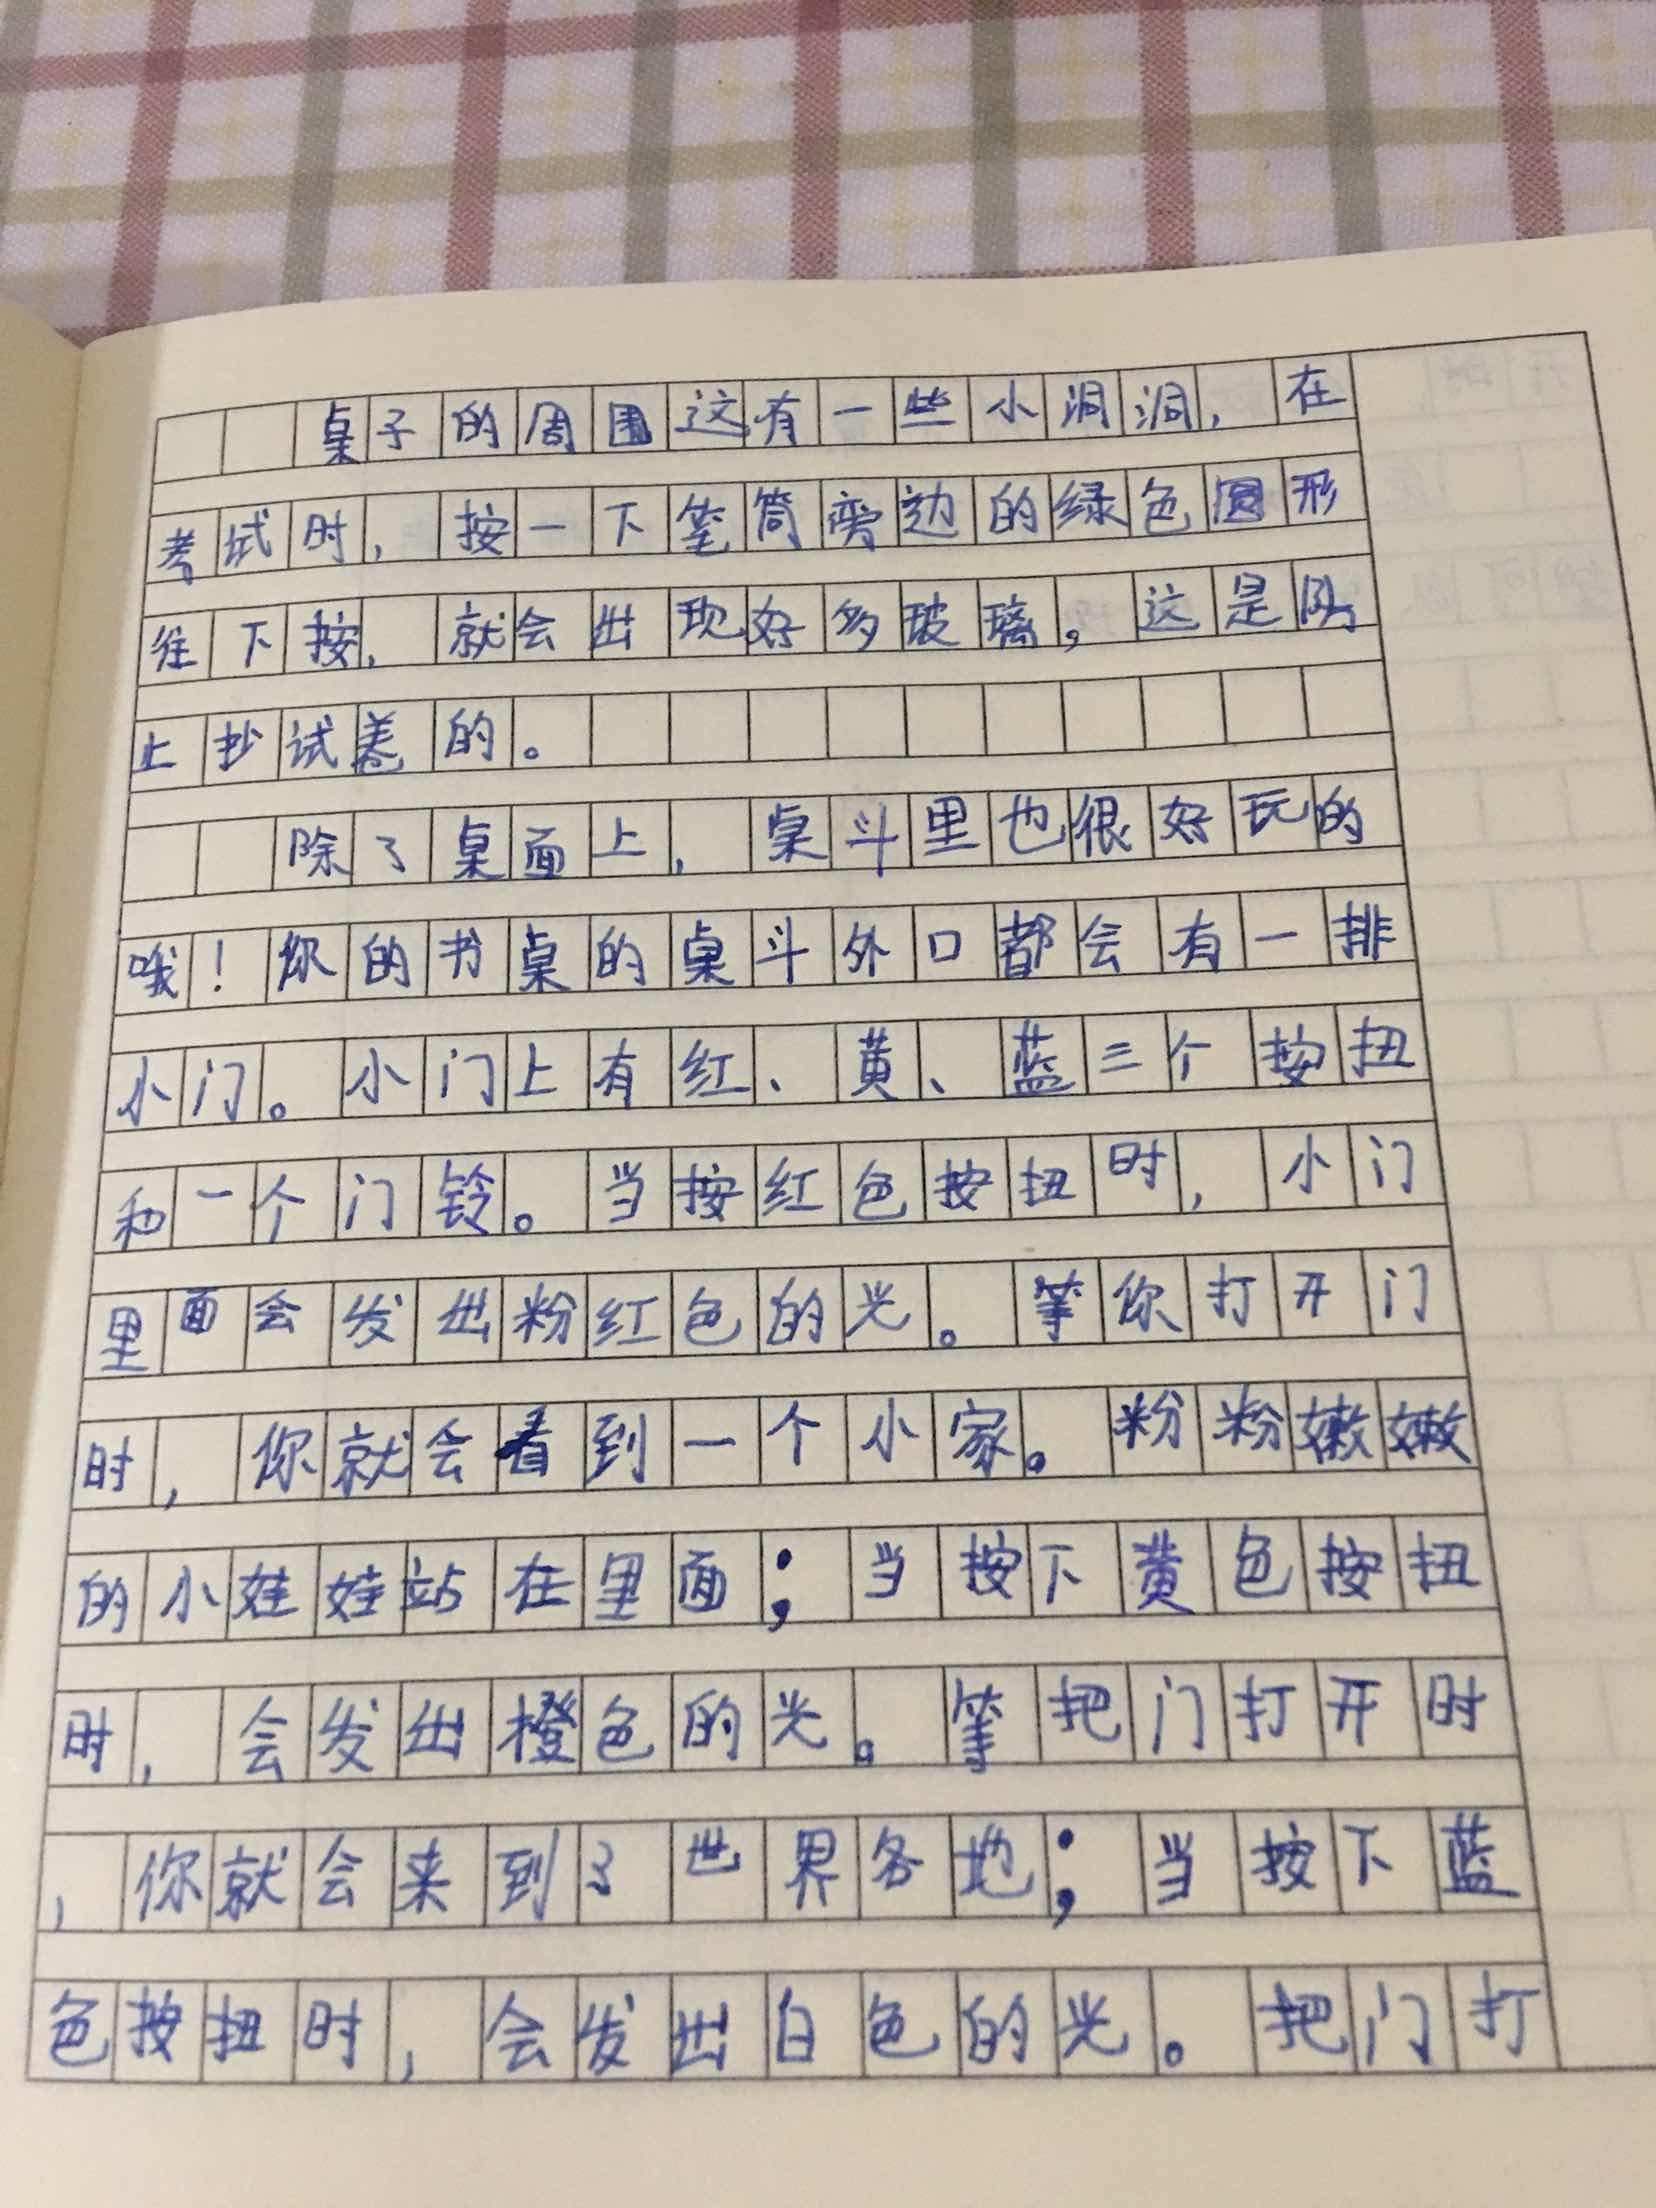 桌子的周围这有一些小洞洞，在
考试时，按一下笔筒旁边的绿色圆形
往下按，就会出现好多玻璃，这是防
止抄试卷的。
除了桌面上，桌斗里也很好玩的
哦！你的书桌的桌斗外口都会有一排
小门。小门上有红、黄、蓝三个按扭
和一个门铃。当按红色按扭时，小门
里面会发出粉红色的光。等你打开门
时，你就会看到一个小家。粉粉嫩嫩
的小娃娃站在里面；当按下黄色按扭
时，会发出橙色的光。等把门打开时
，你就会来到了世界各地；当按下蓝
色按扭时，会发出白色的光。把门打